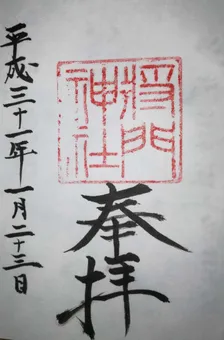 將門
神社
奉拝
平成三十一年一月二十三日